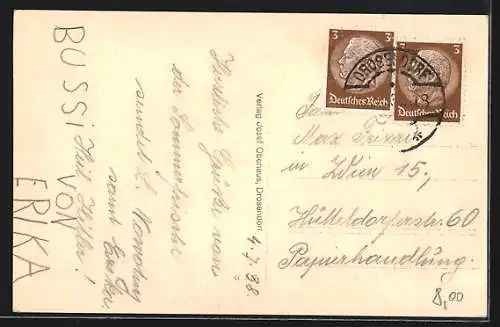 BUSSI VON
ERIKA
Herzliche Grüße von
der Sommerfrische
sendet
samt
Heil Hitler!
4.7.38.
Verlag Josef Oberhaus, Drosendorf
3
Deutsches Reich
3
Deutsches Reich
DROSENDORF
Max
in Wien 15.,
Hütteldorferstr. 60
Papierhandlung
8,00